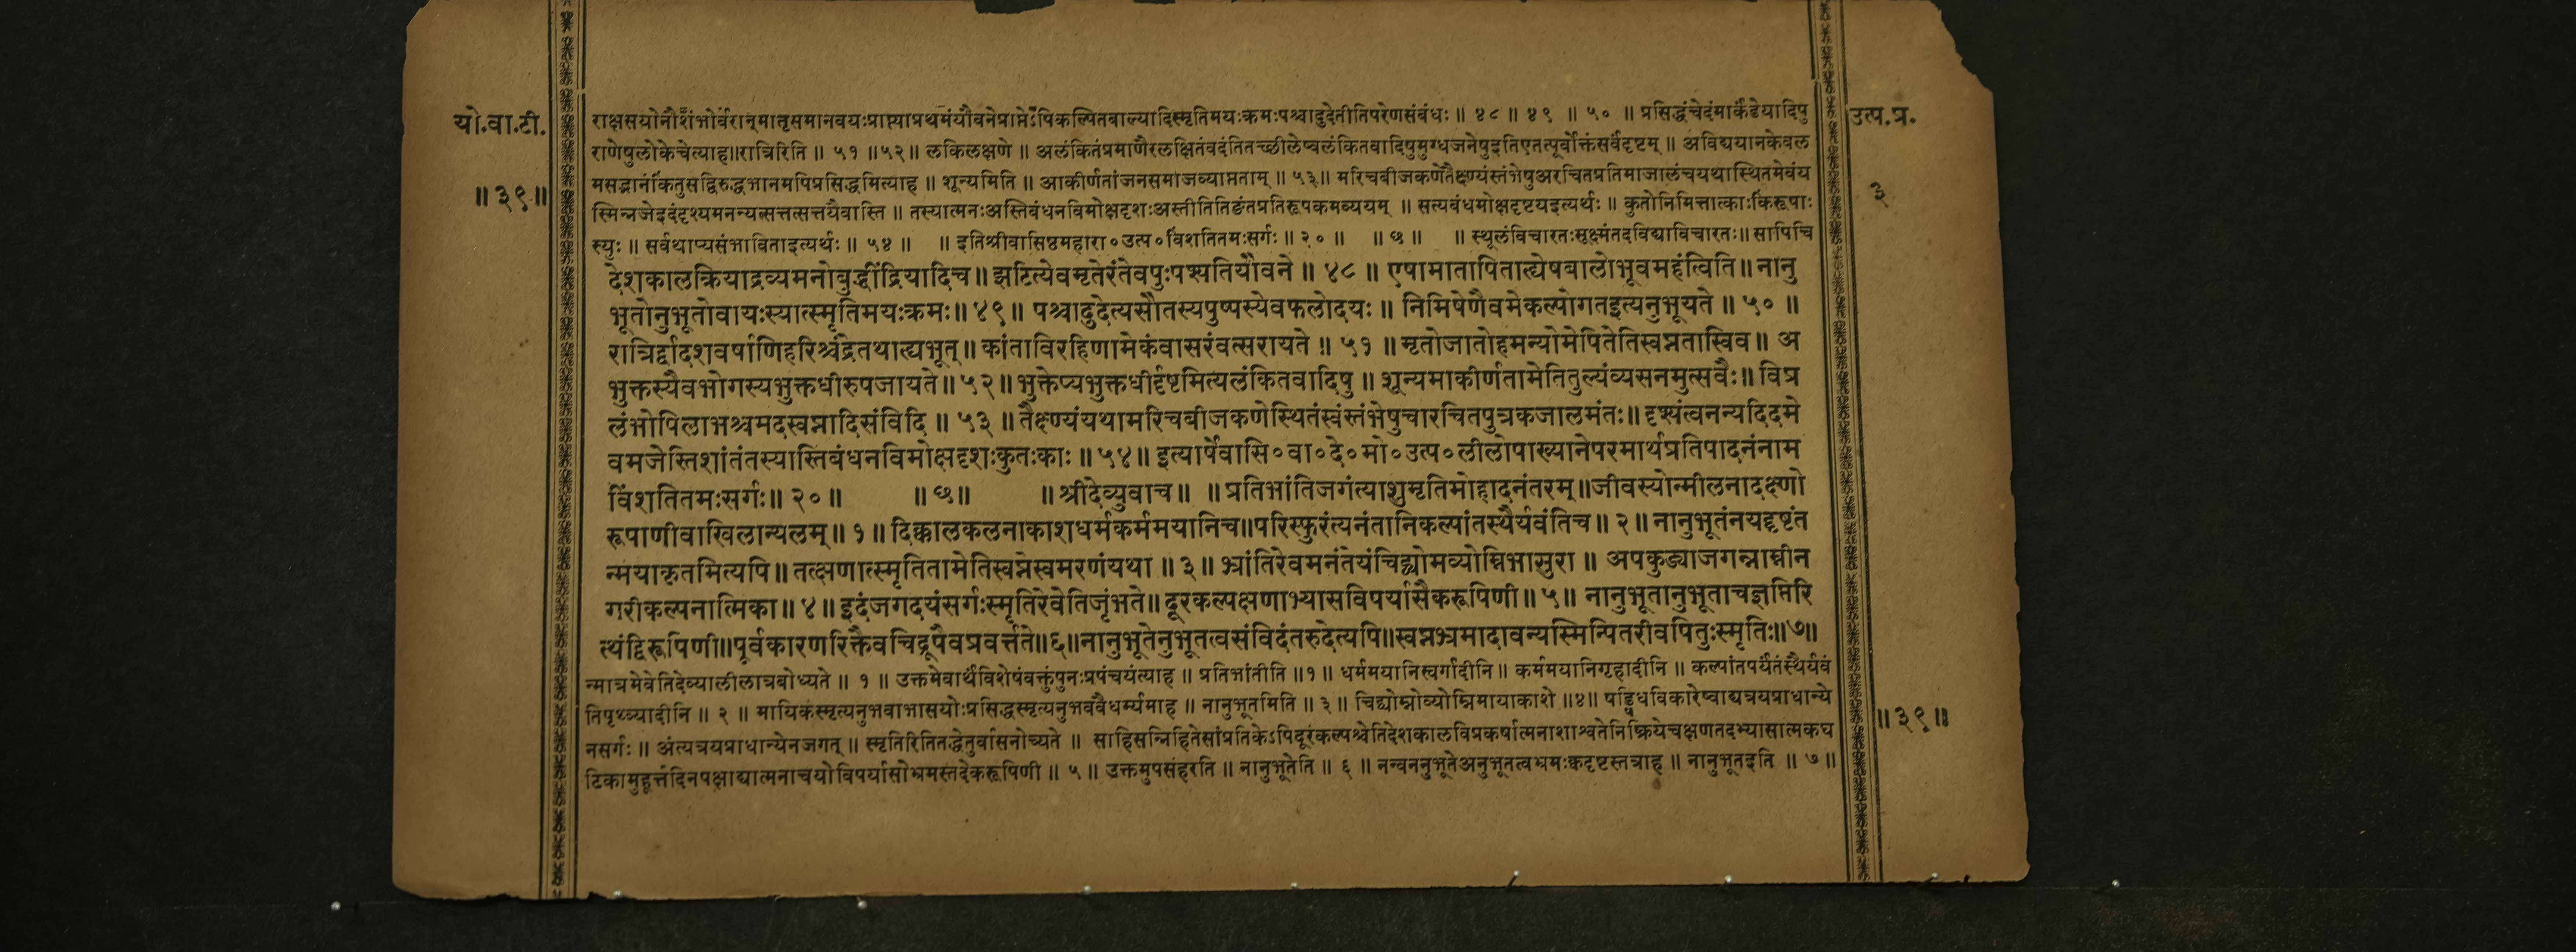 यो.वा.टी.
॥३९॥
उत्प.प्र.
३
राक्षसयोनौशंभोर्वरान्मातृसमानवयःप्राप्त्याप्रथमंयौवनेप्राप्तेऽपिकल्पितबाल्यादिस्मृतिमयःक्रमःपश्चादुदेतीतिपरेणसंबंधः ॥ ४८ ॥ ४९ ॥ ५० ॥ प्रसिद्धंचेदंमार्कंडेयादिपु
राणेषुलोकेचेत्याह॥रात्रिरिति ॥ ५१ ॥५२॥ लकिलक्षणे ॥ अलंकितंप्रमाणैरलक्षितंवदंतितच्छीलेष्वलंकितवादिषुमुग्धजनेषुइतिएतत्पूर्वोक्तंसर्वंदृष्टम् ॥ अविद्ययानकेवल
मसद्भानंकिंतुसद्विरुद्धभानमपिप्रसिद्धमित्याह ॥ शून्यमिति ॥ आकीर्णतांजनसमाजव्याप्तताम् ॥ ५३॥ मरिचबीजकणेतैक्ष्ण्यंस्तंभेषुअरचितप्रतिमाजालंचयथास्थितमेवंय
स्मिन्नजेइदंदृश्यमनन्यत्सत्तत्सत्तयैवास्ति ॥ तस्यात्मनःअस्तिबंधनविमोक्षदृशःअस्तीतितिङंतप्रतिरूपकमव्ययम् ॥ सत्यबंधमोक्षदृष्टयइत्यर्थः ॥ कुतोनिमित्तात्काःकिंरूपाः
स्युः ॥ सर्वथाप्यसंभाविताइत्यर्थः ॥ ५४ ॥ ॥ इतिश्रीवासिष्ठमहारा०उत्प०विंशतितमःसर्गः ॥ २० ॥ ॥ छ ॥ ॥ स्थूलंविचारतःसूक्ष्मंतदविद्याविचारतः॥ सापिचि
देशकालक्रियाद्रव्यमनोबुद्धींद्रियादिच॥ झटित्येवमृतेरंतेवपुःपश्यतियौवने ॥ ४८ ॥ एषामातापितात्द्येषबालोभूवमहंत्विति॥ नानु
भूतोनुभूतोवायःस्यात्स्मृतिमयःक्रमः॥ ४९॥ पश्चादुदेत्यसौतस्यपुष्पस्येवफलोदयः॥ निमिषेणैवमेकल्पोगतइत्यनुभूयते ॥ ५० ॥
रात्रिर्द्वादशवर्षाणिहरिश्चंद्रेतथात्द्यभूत्॥ कांताविरहिणामेकंवासरंवत्सरायते ॥ ५१ ॥ मृतोजातोहमन्योमेपितेतिस्वप्नतास्विव॥ अ
भुक्तस्यैवभोगस्यभुक्तधीरुपजायते॥ ५२॥ भुक्तेप्यभुक्तधीर्दृष्टमित्यलंकितवादिषु ॥ शून्यमाकीर्णतामेतितुल्यंव्यसनमुत्सवैः॥ विप्र
लंभोपिलाभश्चमदस्वप्नादिसंविदि ॥ ५३ ॥ तैक्ष्ण्यंयथामरिचबीजकणेस्थितंस्वंस्तंभेषुचारचितपुत्रकजालमंतः॥ दृश्यंत्वनन्यदिदमे
वमजेस्तिशांतंतस्यास्तिबंधनविमोक्षदृशःकुतःकाः ॥ ५४॥ इत्यार्षेवासि०वा०दे०मो०उत्प०लीलोपाख्यानेपरमार्थप्रतिपादनंनाम
विंशतितमःसर्गः॥ २०॥ ॥ छ॥ ॥ श्रीदेव्युवाच॥ ॥ प्रतिभांतिजगंत्याशुमृतिमोहादनंतरम्॥जीवस्योन्मीलनादक्ष्णो
रूपाणीवाखिलान्यलम्॥ १॥ दिक्कालकलनाकाशधर्मकर्ममयानिच॥परिस्फुरंत्यनंतानिकल्पांतस्थैर्यवंतिच॥ २॥ नानुभूतंनयद्दृष्टंत
न्मयाकृतमित्यपि॥ तत्क्षणात्स्मृतितामेतिस्वप्नेस्वमरणंयथा ॥ ३॥ भ्रांतिरेवमनंतेयंचिद्व्योमव्योम्निभासुरा ॥ अपकुड्याजगन्नाम्नीन
गरीकल्पनात्मिका॥ ४॥ इदंजगदयंसर्गःस्मृतिरेवेतिजृंभते॥ दूरकल्पक्षणाभ्यासविपर्यासैकरूपिणी॥ ५॥ नानुभूतानुभूताचज्ञप्तिरि
त्थंद्विरूपिणी॥पूर्वकारणरिक्तैवचिद्रूपैवप्रवर्त्तते॥६॥नानुभूतेनुभूतत्वसंविदंतरुदेत्यपि॥स्वप्नभ्रमादावन्यस्मिन्पितरीवपितुःस्मृतिः॥७॥
न्मात्रमेवेतिदेव्यालीलात्रबोध्यते ॥ १ ॥ उक्तमेवार्थंविशेषंवक्तुंपुनःप्रपंचयंत्याह ॥ प्रतिभांतीति ॥१॥ धर्ममयानिस्वर्गादीनि॥ कर्ममयानिगृहादीनि ॥ कल्पांतपर्यंतंस्थैर्यवं
तिपृथ्व्यादीनि ॥ २ ॥ मायिकस्मृत्यनुभवाभासयोःप्रसिद्धस्मृत्यनुभववैधर्म्यमाह ॥ नानुभूतमिति ॥ ३॥ चिद्व्योम्नोव्योम्निमायाकाशे ॥४॥ षड्विधविकारेष्वाद्यत्रयप्राधान्ये
नसर्गः ॥ अंत्यत्रयप्राधान्येनजगत् ॥ स्मृतिरितितद्धेतुर्वासनोच्यते ॥ साहिसन्निहितेसांप्रतिकेऽपिदूरंकल्पश्चेतिदेशकालविप्रकर्षात्मनाशाश्वतेनिष्क्रियेचक्षणतदभ्यासात्मकघ
टिकामुहूर्त्तदिनपक्षाद्यात्मनाचयोविपर्यासोभ्रमस्तदेकरूपिणी ॥ ५ ॥ उक्तमुपसंहरति ॥ नानुभूतेति ॥ ६ ॥ नन्वननुभूतेअनुभूतत्वभ्रमःक्वदृष्टस्तत्राह ॥ नानुभूतइति ॥ ७ ॥
॥३९॥